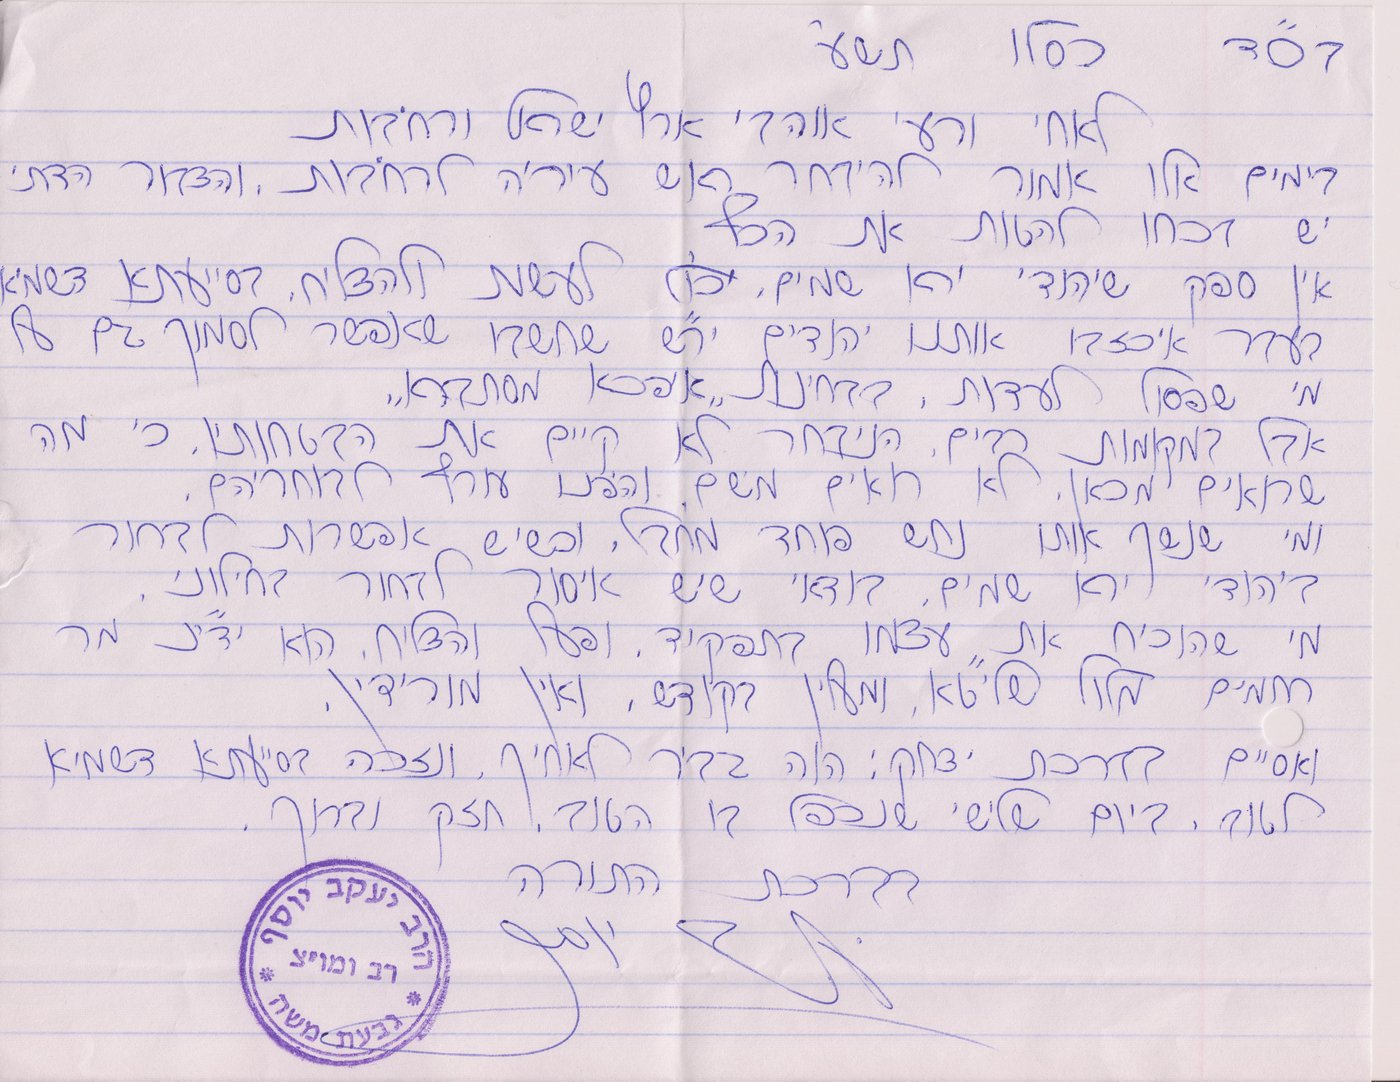 בס"ד כסלו תשע'
לאחי ורעי אוהבי ארץ ישראל ורחובות
בימים אלו אמור להיבחר ראש עירי'ה לרחובות, והצבור הדתי
יש בכחו להטות את הכף,
אין ספק שיהודי ירא שמים, יכול לעשות ולהצליח, בסייעתא דשמיא
בעבר איכזבו אותנו יהודים יר"ש שחשבו שאפשר לסמוך גם על
מי שפסול לעדות, בבחינת "איפכא מסתברא"
אבל במקומות רבים, הניבחר לא קיים את הבטחותיו, כי מה
שרואים מכאן, לא רואים משם, והפנו עורף לבוחריהם,
ומי שנשך אותו נחש פוחד מחבל, וכשיש אפשרות לבחור
ביהודי ירא שמים, בודאי שיש איסור לבחור בחילוני,
מי שהוכיח את עצמו בתפקיד, ופעל והצליח, הוא ידי"נ מר
רחמים מלול שליט"א, ומעלין בקודש, ואין מורידין,
ואסיים בברכת יצחק: הוה גביר לאחיך, ונזכה בסייעתא דשמיא
לטוב, ביום שלישי שנכפל בו הטוב, חזק וברוך,
בברכת התורה
יוסף
הרב יעקב יוסף
רב ומו"צ
גבעת משה